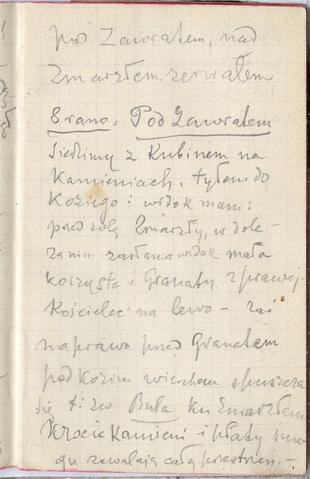 pod Zawratem, nad
Zmarzłem. zerwałem
8 rano. Pod Zawratem
Siedlimy z Kubinem na
Kamieniach, tyłem do
Koziego i widok mam:
przed sobą Zmarzły, w dole-
za nim zasłania widok mała
koszysta i Granaty. z prawej-
Kościelec na lewo - zaś
na prawo przed Granatem
pod Kozim wierchem spuszcza
się t. zw Buła ku Zmarzłem
Krocie Kamieni i płaty śnie-
gu zawalają całą przestrzeń. -